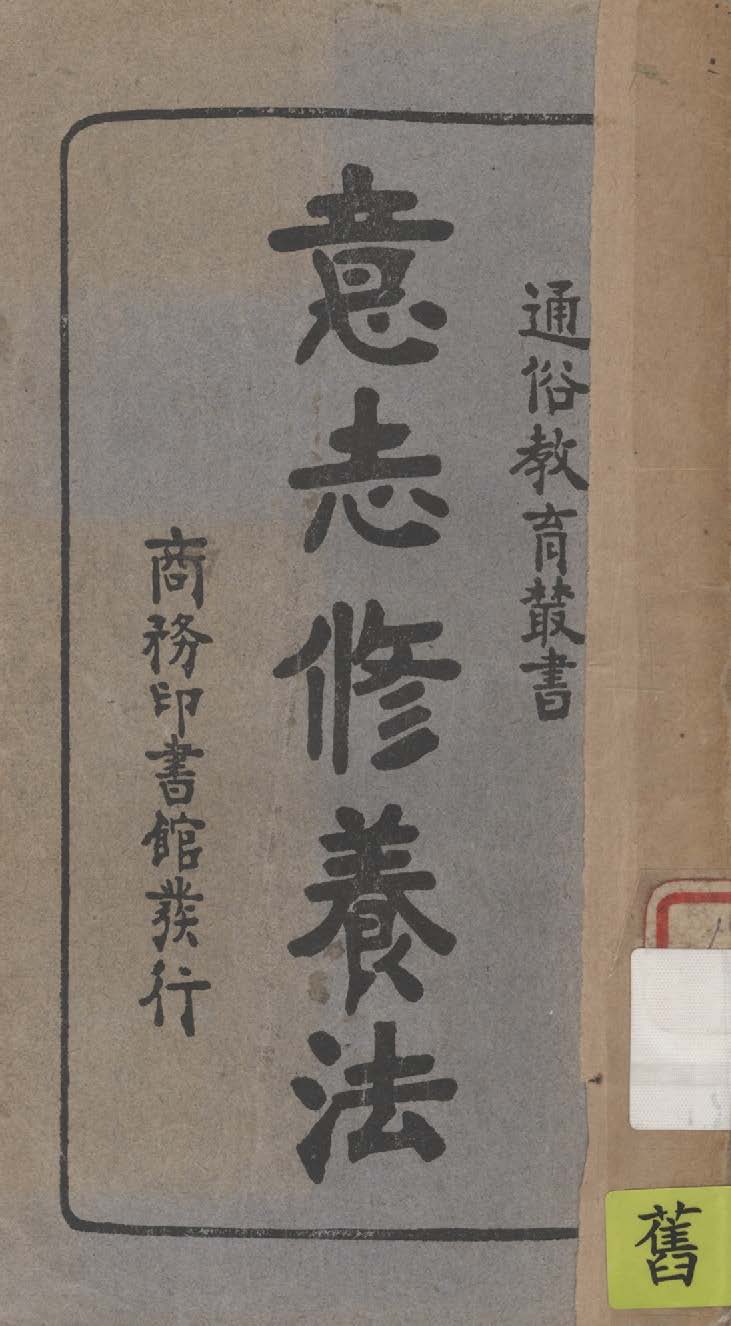 通俗教育叢書
意志修養法
商務印書館發行
舊